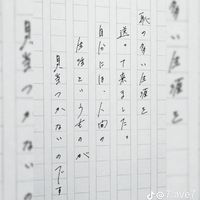 多い生涯を
恥の多い生涯を
送って来ました。
自分には、人間の
生活というものが
見当つかないのです
見当つかないの
@7.ave7